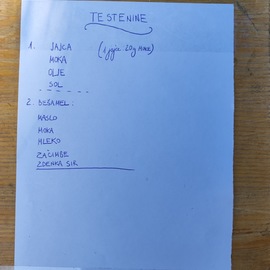 TESTENINE
1. JAJCA (1 jajce 20g MOKE)
MOKA
OLJE
SOL
2. BEŠAMEL:
MASLO
MOKA
MLEKO
ZAČIMBE
ZDENKA SIR